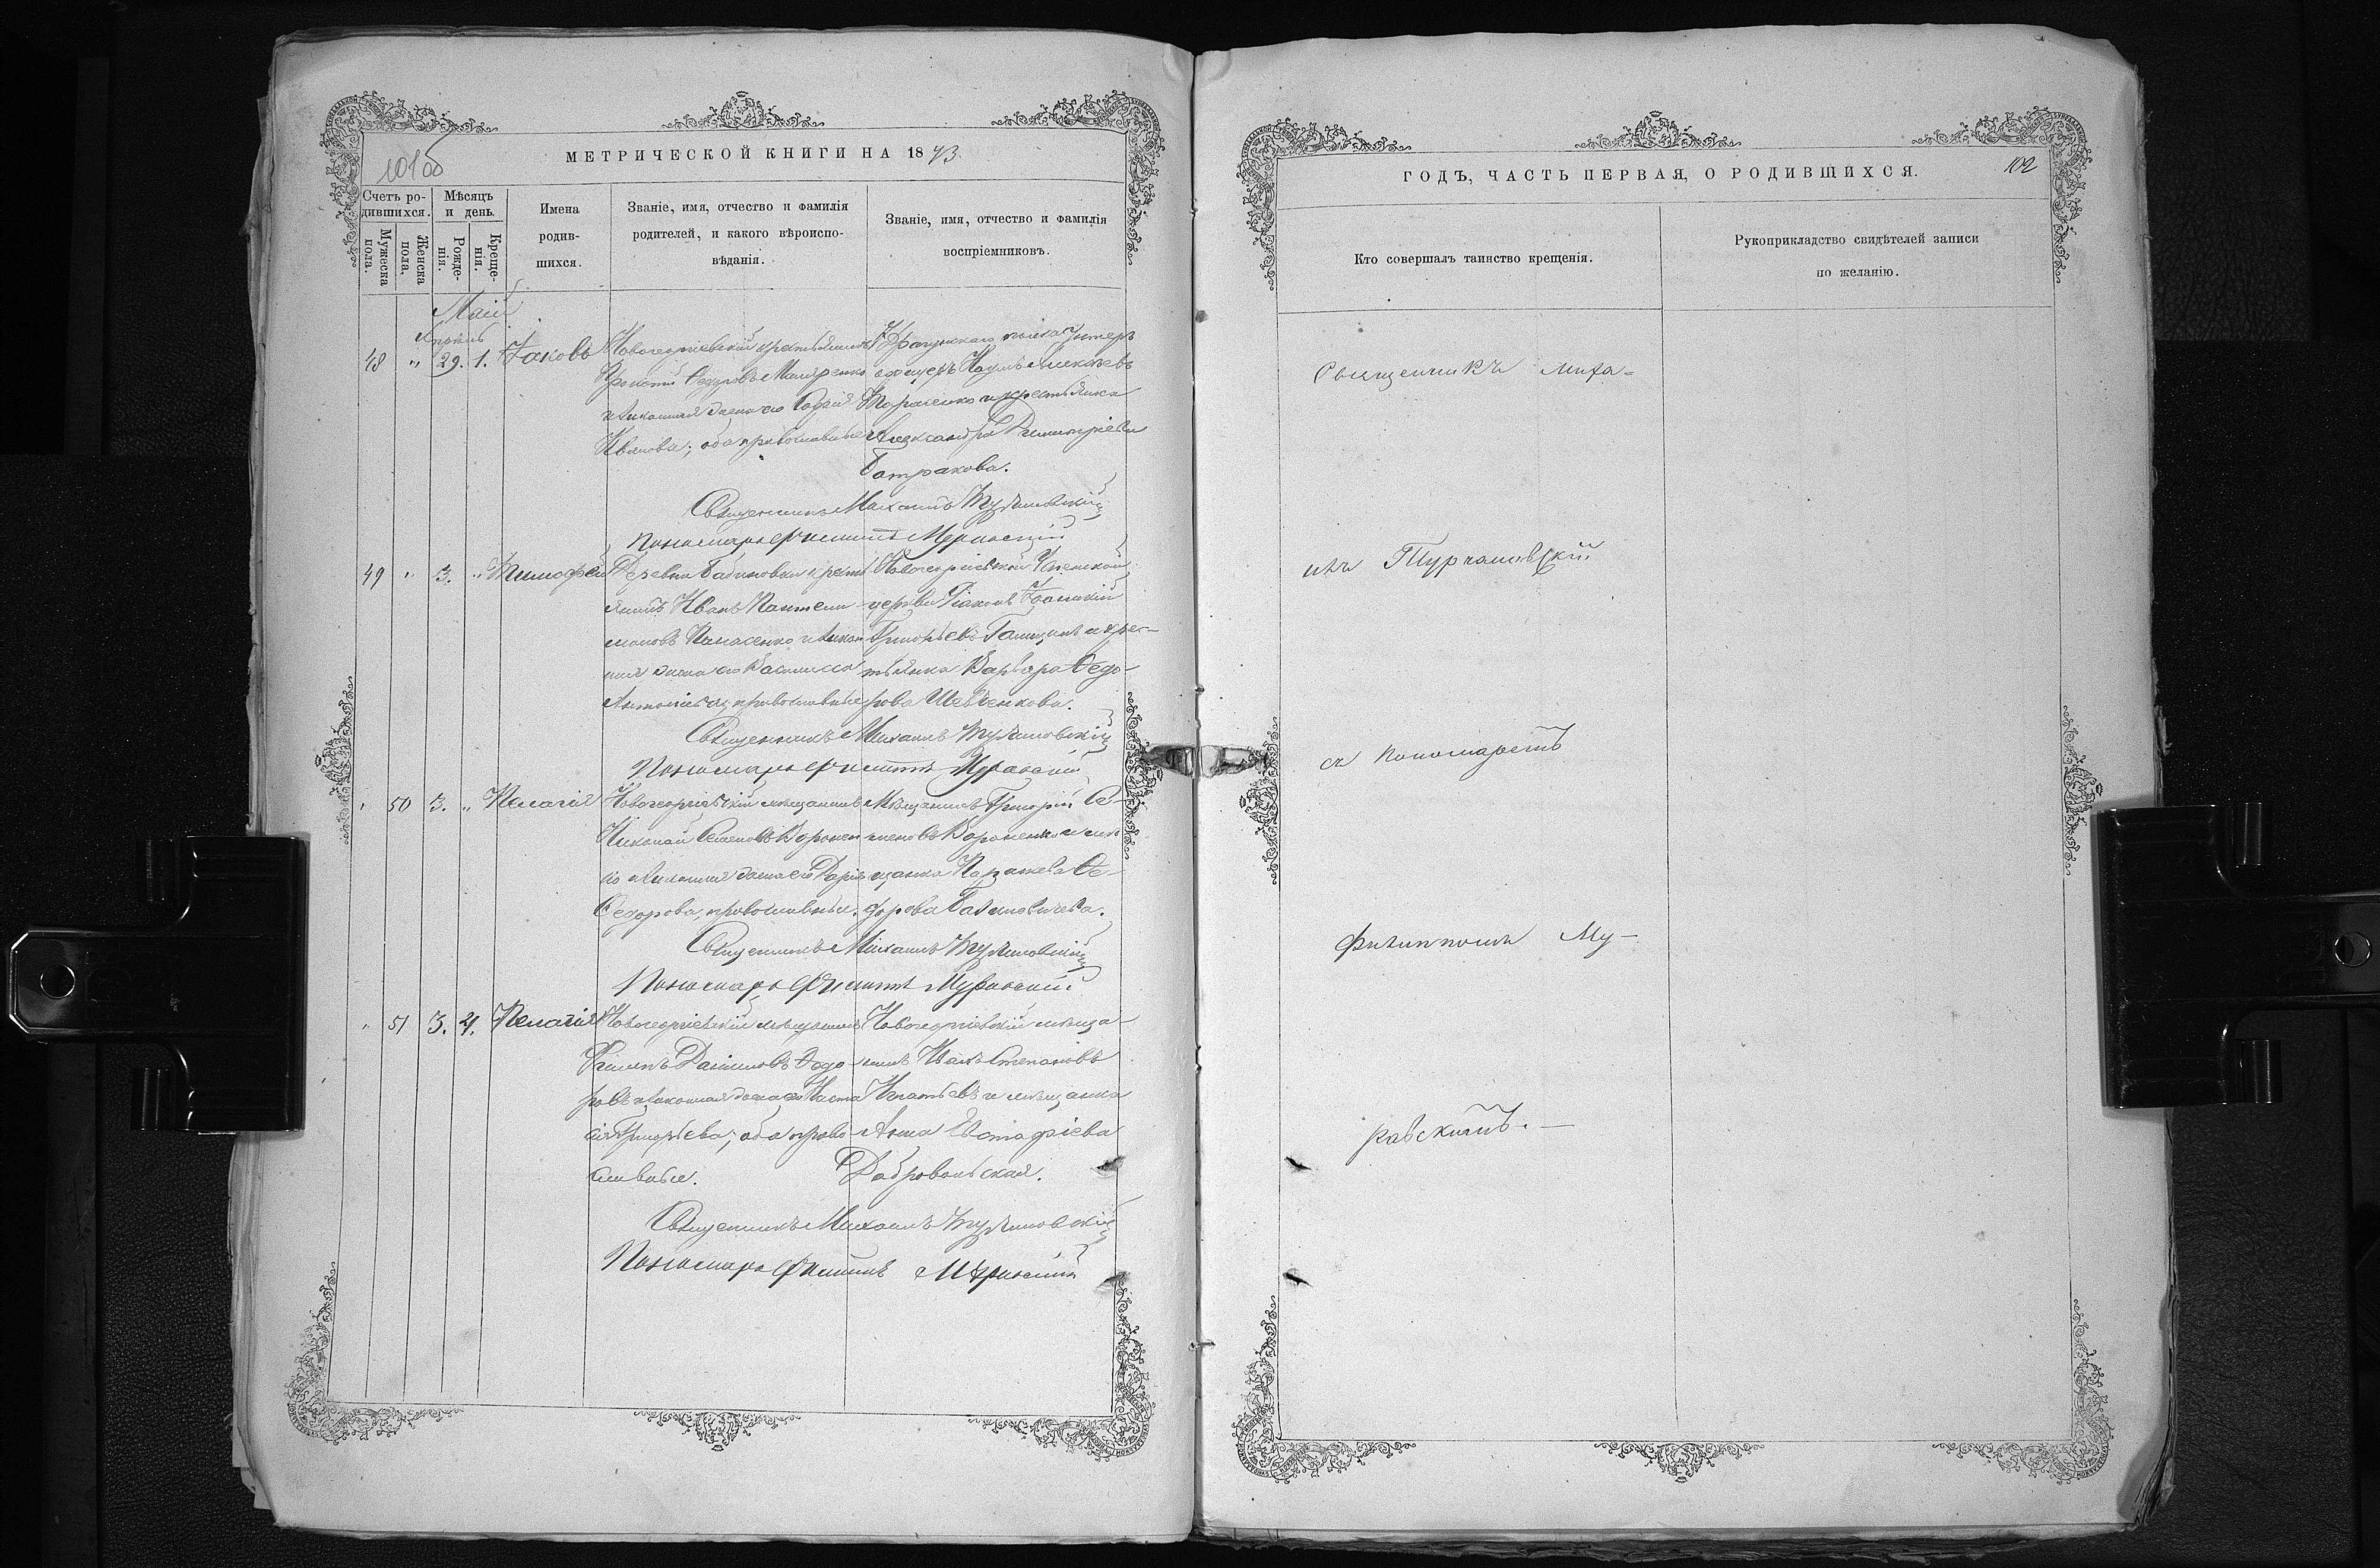 101об
МЕТРИЧЕСКОЙ КНИГИ НА 1873
Счетъ ро-
дившихся.
Мужеска
пола.
Женска
пола.
Мѣсяцъ
и день.
Рожде-
нія.
Креще-
нія.
Имена
родив-
шихся.
Званіе, имя, отчество и фамилія
родителей, и какого вѣроиспо-
вѣданія.
Званіе, имя, отчество и фамилія
воспріемниковъ.
Май
Апрѣль
48 „ 29. 1. Іаковъ
Новогеоргіевскій крестьянинъ
Ѳедоровъ
и законная жена его Софія
Иванова; оба православные
полка Унтеръ
офицеръ Наумъ Алексѣевъ
и крестьянка
Александра Димитріева
Батракова.
Священникъ Михаилъ Турчановскій
Пономарь Филиппъ Муравскій
49 „ 3. „ Тимофей
Деревни Бабиновки крестья
янинъ Иванъ Пантели
моновъ Панасенко и закон
ная жена его Василисса
Антоніева, православные
Новогеоргіевской Успенской
церкви Діаконъ Іоанникій
Григорьевъ Галицкій и крес-
тьянка Варвара Ѳедо-
рова Шевченкова.
Священникъ Михаилъ Турчановскій
Пономарь Филиппъ Муравскій
„ 50 3. „ Пелагія
Новогеоргіевскій мѣщанинъ
Николай Семеновъ Воронен
ко и законная жена его Дарія
Ѳедорова, православные.
Мѣщанинъ Григорій Се-
меновъ Вороненко и мѣ
щанка Параскева Ѳе-
дорова
Священникъ Михаилъ Турчановскій
Пономарь Филиппъ Муравскій
„ 51 3. 4. Пелагія
Новогеоргіевскій мѣщанинъ
Филипъ Даниловъ Ѳедо-
ровъ и законная жена его Наста
сія Григорьева; оба право-
славные.
Новогеоргіевскій мѣща-
нинъ Иванъ Степановъ
Игнатьевъ и мѣщанка
Анна Евстафіева
Добровольская.
Священникъ Михаилъ Турчановскій
Пономарь Филиппъ Муравскій
102
ГОДЪ, ЧАСТЬ ПЕРВАЯ, О РОДИВШИХСЯ.
Кто совершалъ таинство крещенія.
Рукоприкладство свидѣтелей записи
по желанію.
Священникъ Миха-
илъ Турчановскій
съ Пономаремъ
Филиппомъ Му-
равскимъ. —